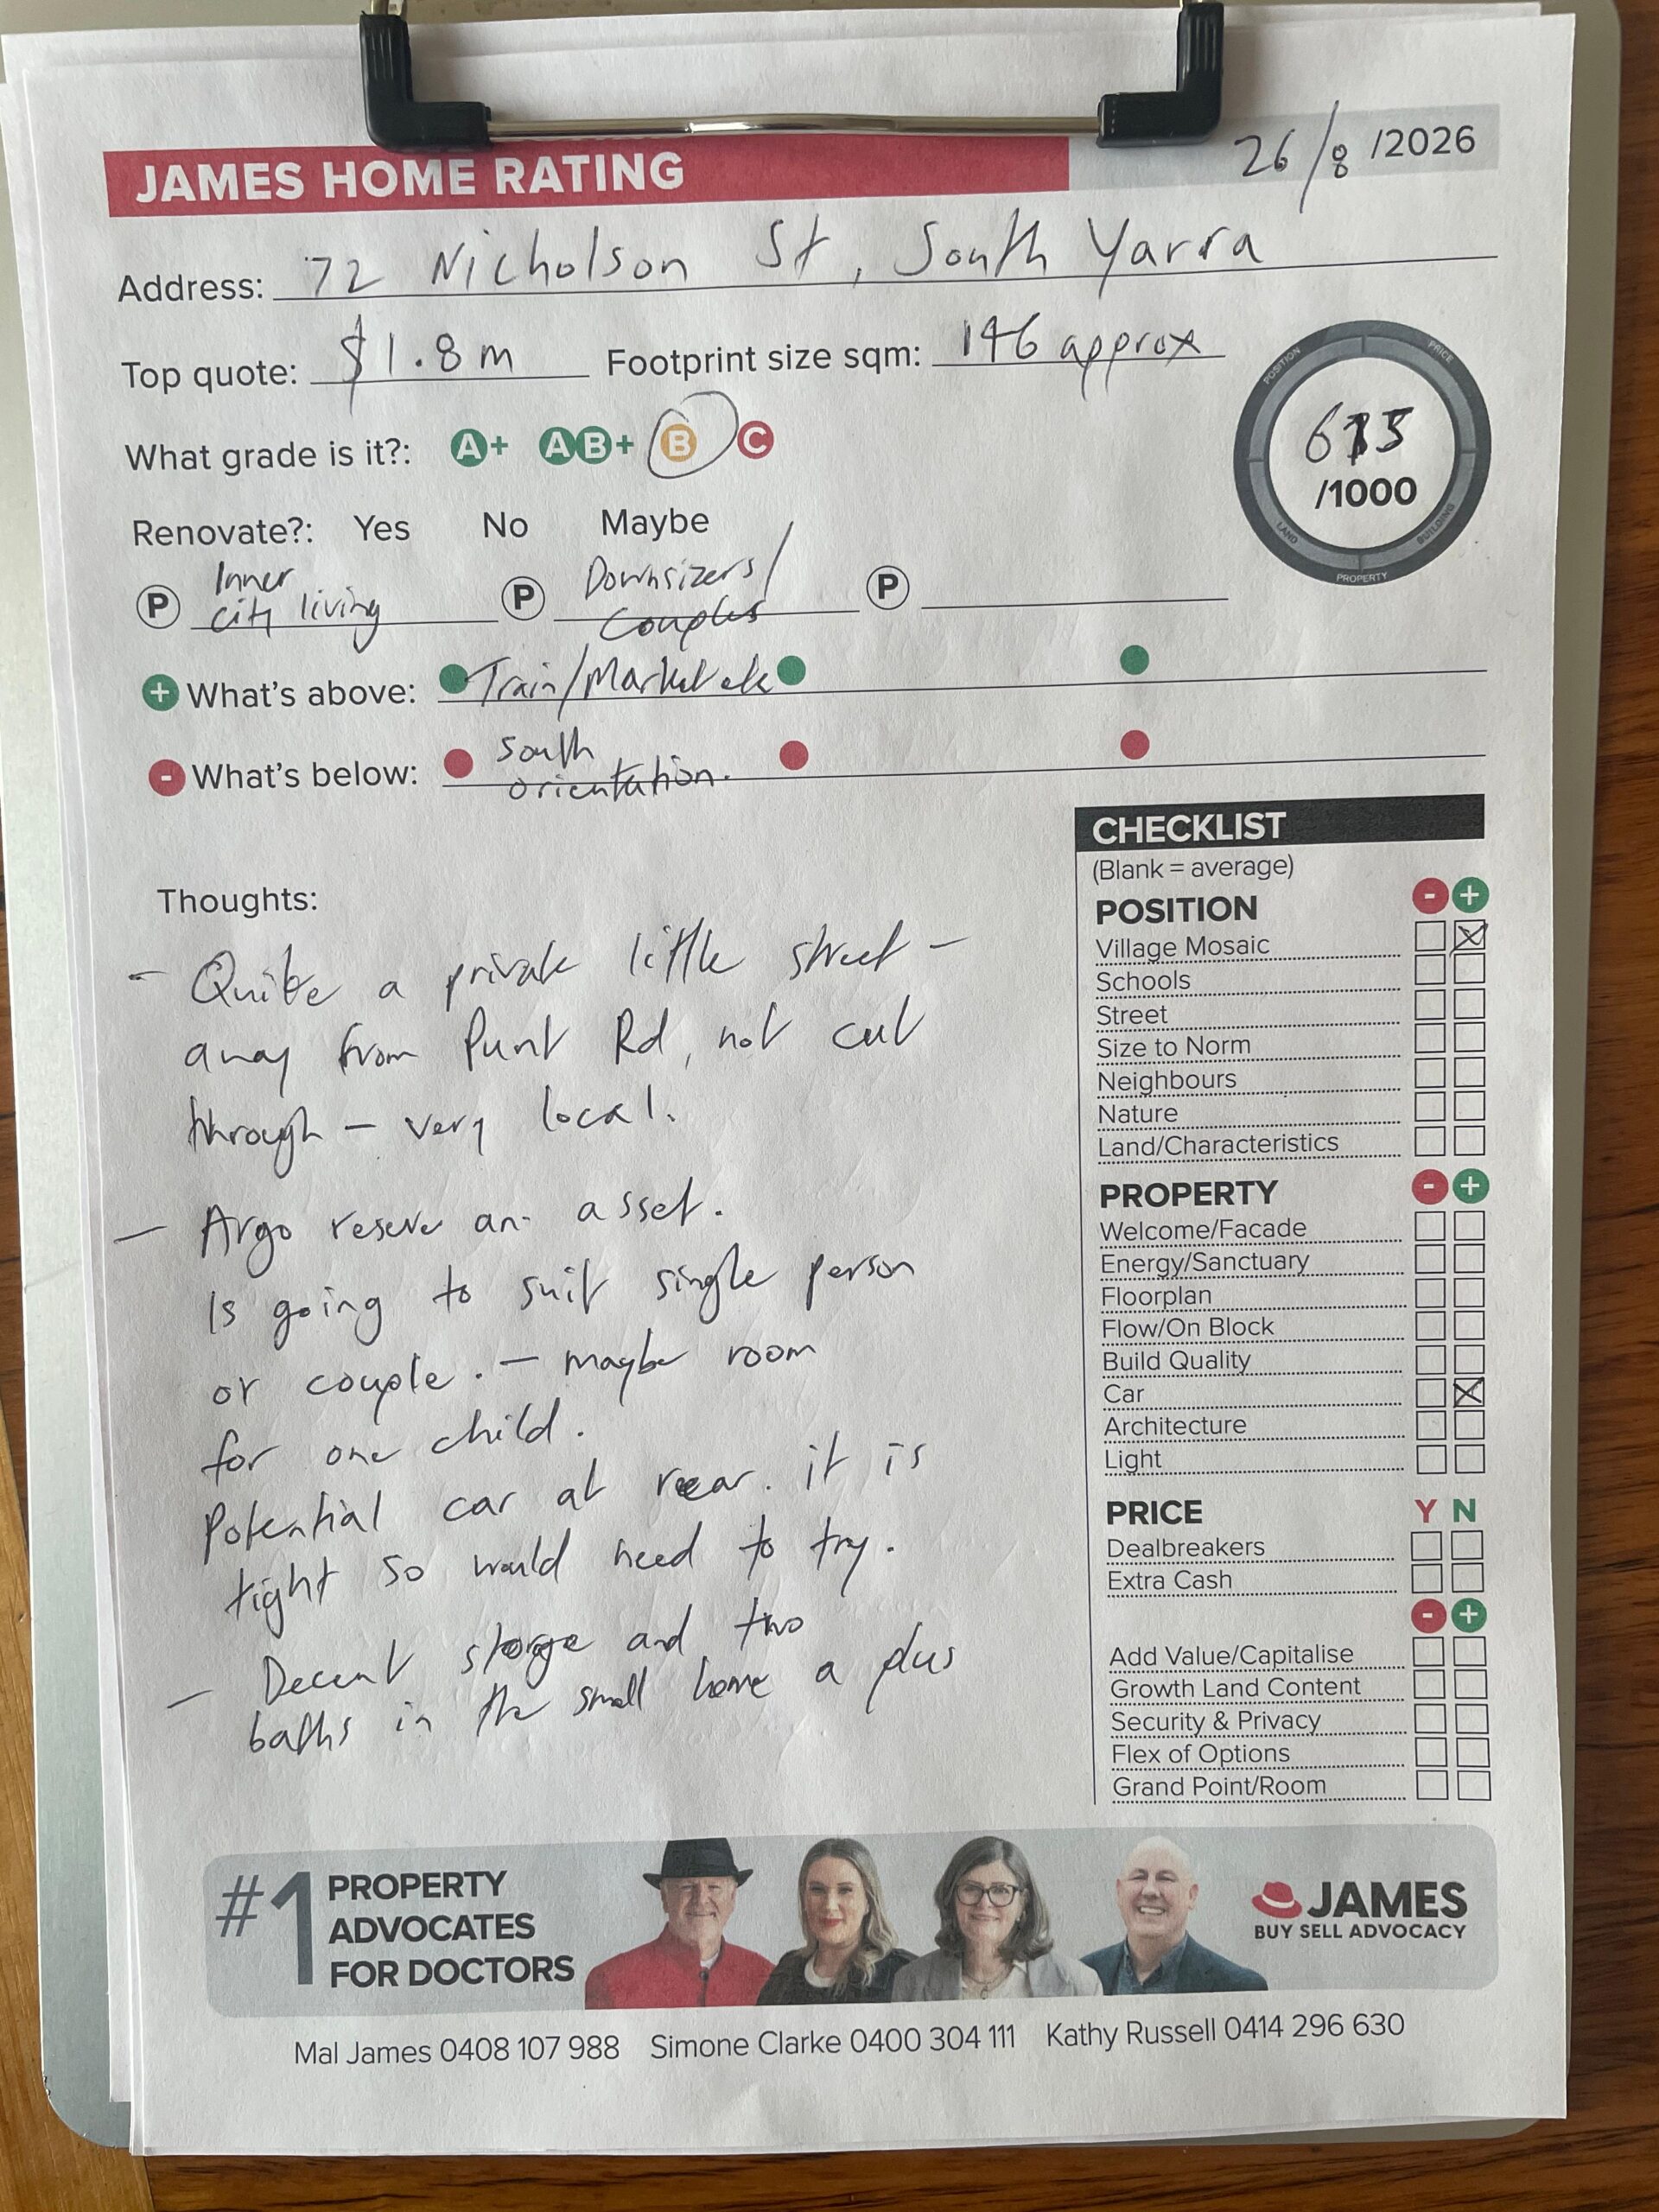 JAMES HOME RATING
26/8 /2026
Address: 72 Nicholson St, South Yarra
Top quote: $1.8m Footprint size sqm: 146 approx
POSITION PRICE LAND BUILDING PROPERTY
/1000
What grade is it?: A+ AB+ B C
Renovate?: Yes No Maybe
P Inner city living P Downsizers/ Couples P
+ What's above: Train/Market etc
- What's below: South orientation.
Thoughts:
- Quite a private little street -
away from Punt Rd, not cut
through - very local.
- Argo reserve an asset.
Is going to suit single person
or couple. - maybe room
for one child.
Potential car at rear. it is
tight so would need to try.
- Decent storge and two
baths in the small home a plus
CHECKLIST
(Blank = average)
POSITION - +
Village Mosaic
Schools
Street
Size to Norm
Neighbours
Nature
Land/Characteristics
PROPERTY - +
Welcome/Facade
Energy/Sanctuary
Floorplan
Flow/On Block
Build Quality
Car
Architecture
Light
PRICE Y N
Dealbreakers
Extra Cash
- +
Add Value/Capitalise
Growth Land Content
Security & Privacy
Flex of Options
Grand Point/Room
#1 PROPERTY
ADVOCATES
FOR DOCTORS
JAMES
BUY SELL ADVOCACY
Mal James 0408 107 988 Simone Clarke 0400 304 111 Kathy Russell 0414 296 630